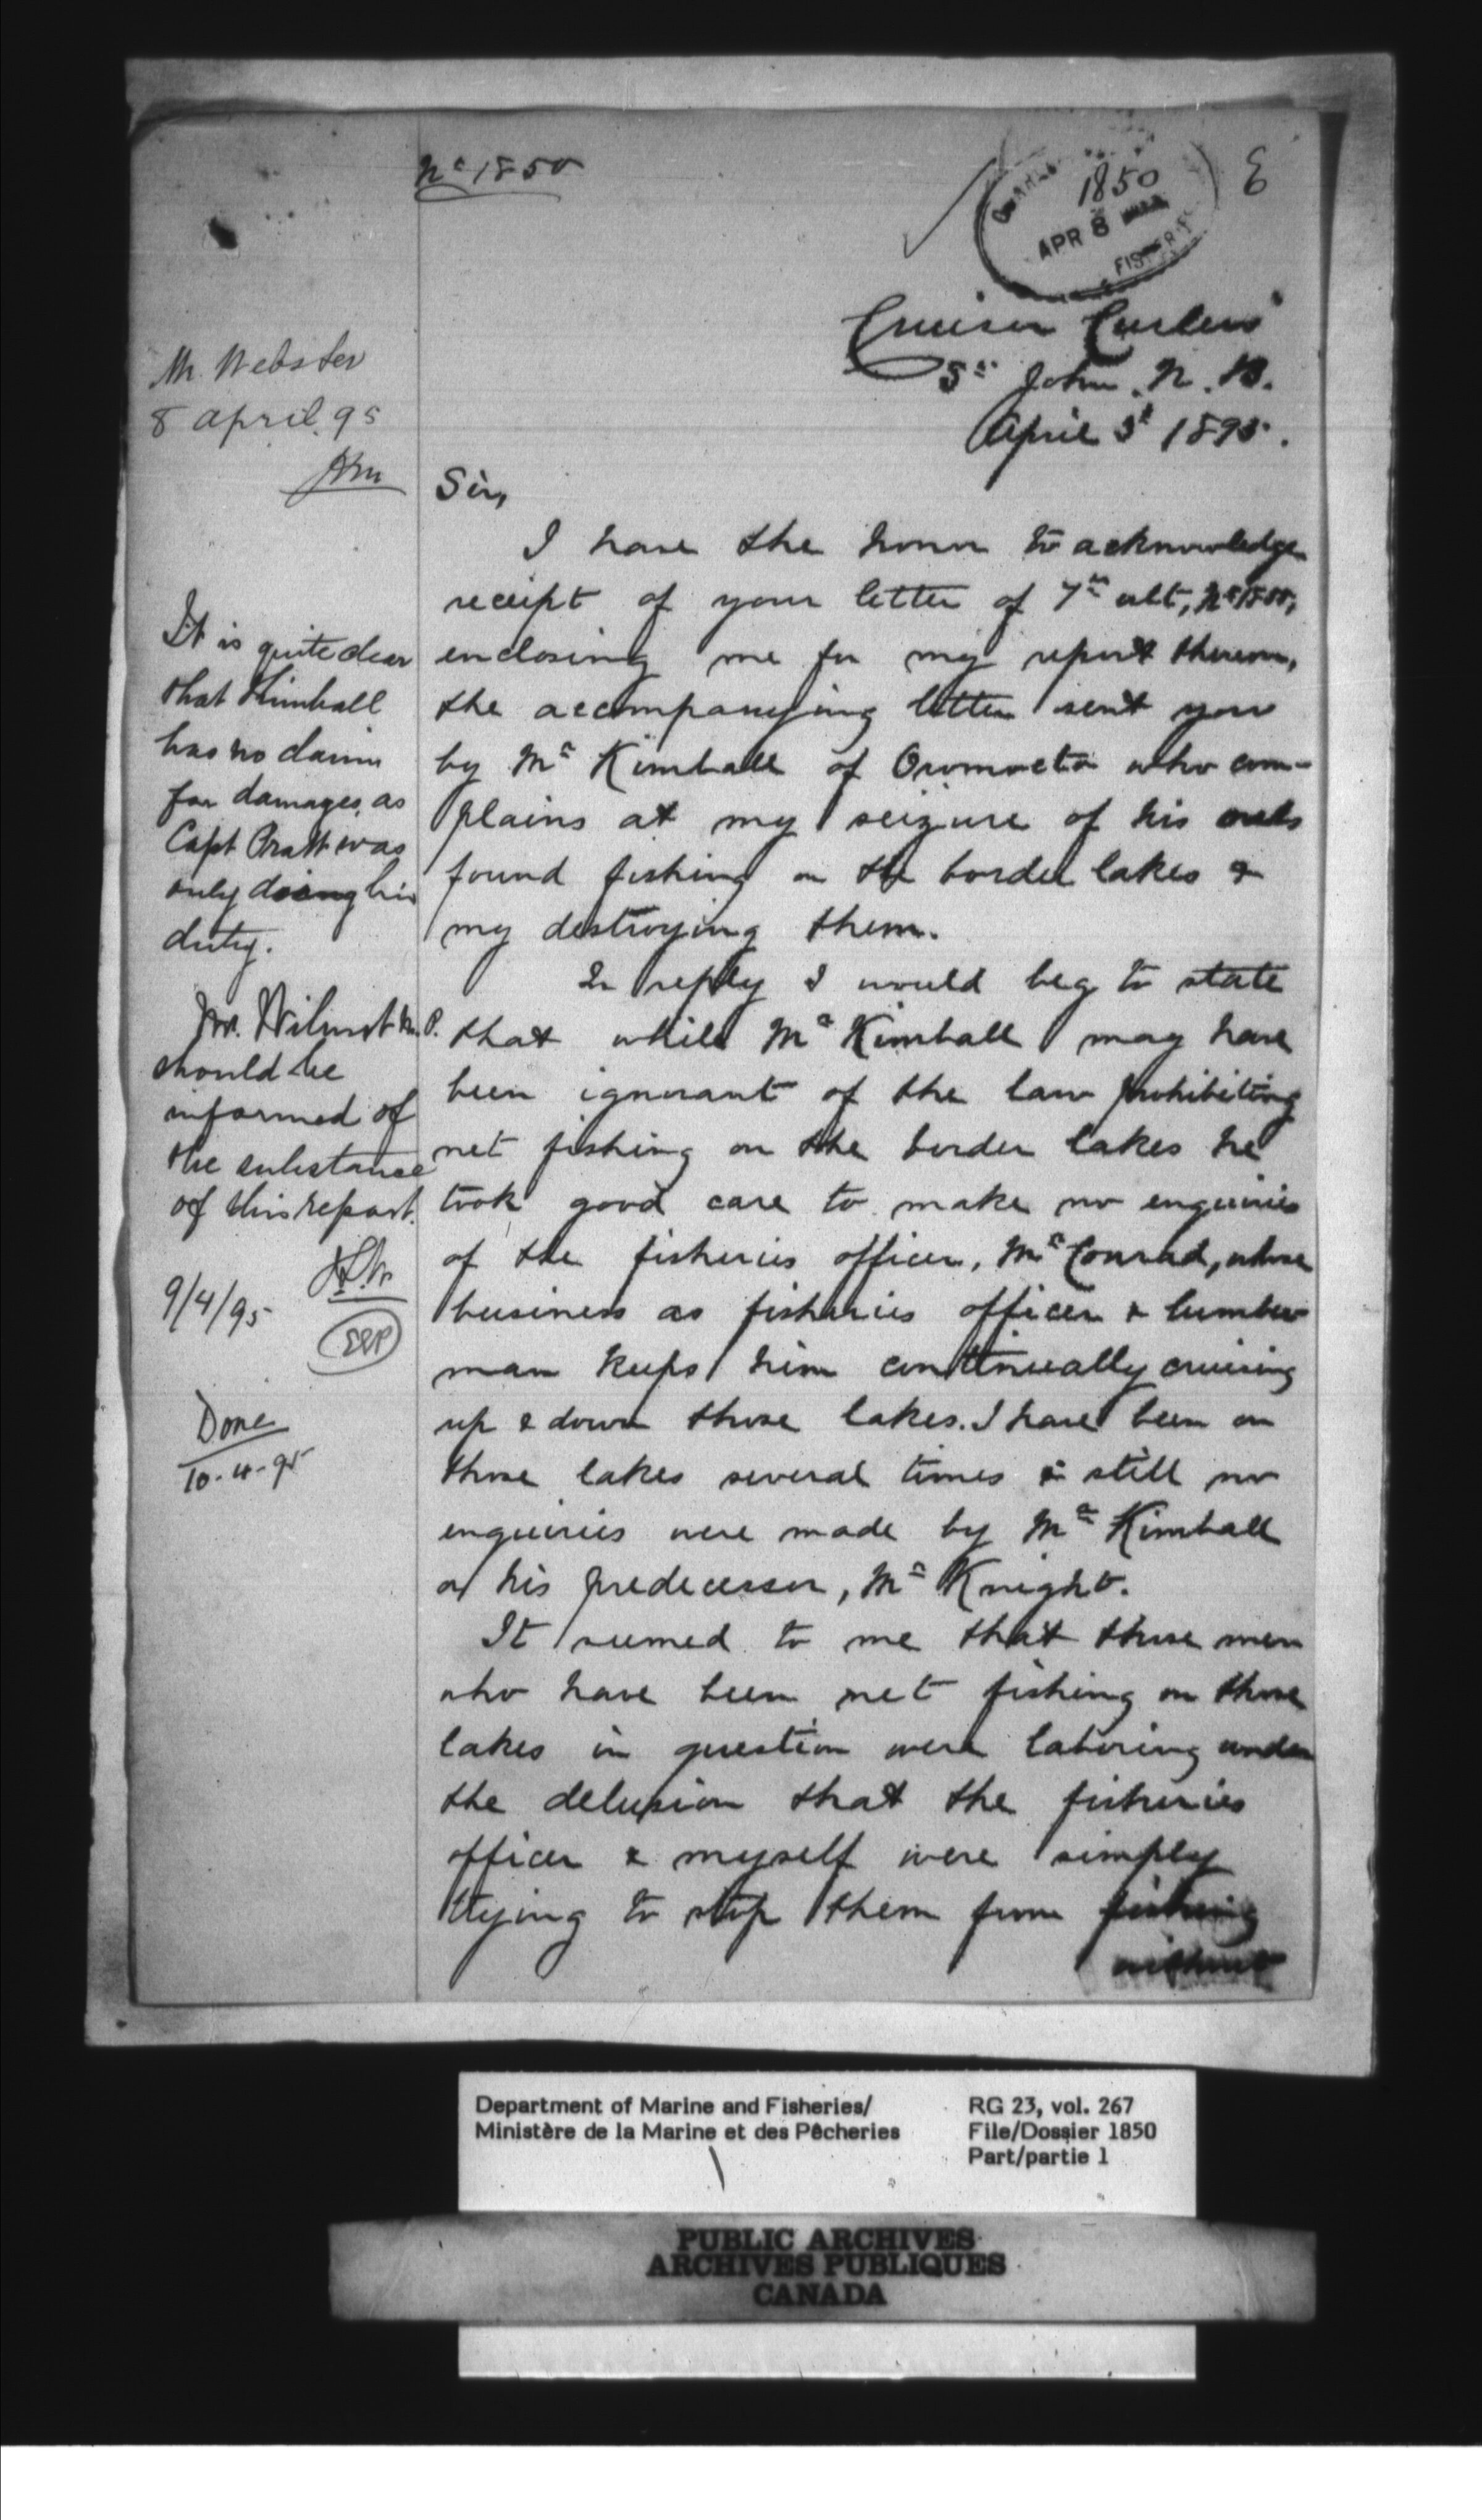 No 1850
1850
APR 8
FISHERIES
E
Cruiser Curlew
St John. N. B.
April 3d 1895.
Mr Webster
8 April. 95
Sir,
I have the honor to acknowledge
receipt of your letter of 7th ult, No
enclosing me for my report thereon,
the accompanying letter sent you
by Mr Kimball of Oromocto who com-
plains at my seizure of his nets
found fishing on the border lakes &
my destroying them.
In reply I would beg to state
that while Mr Kimball may have
been ignorant of the law prohibiting
net fishing on the border lakes he
took good care to make no enquiries
of the fisheries officer, Mr Conrad, whose
business as fisheries officer & lumber
man keeps him continually cruising
up & down those lakes. I have been on
those lakes several times & still no
enquiries were made by Mr Kimball
or his predecessor, Mr Knight.
It seemed to me that those men
who have been net fishing on those
lakes in question were laboring under
the delusion that the fisheries
officer & myself were simply
trying to stop them from fishing
without
It is quite clear
that Kimball
has no claim
for damages, as
Capt Pratt was
only doing his
duty.
Mr. Wilmot M.P.
should be
informed of
the substance
of this report.
9/4/95
Done
10-4-95
Department of Marine and Fisheries/
Ministère de la Marine et des Pêcheries
RG 23, vol. 267
File/Dossier 1850
Part/partie 1
PUBLIC ARCHIVES
ARCHIVES PUBLIQUES
CANADA